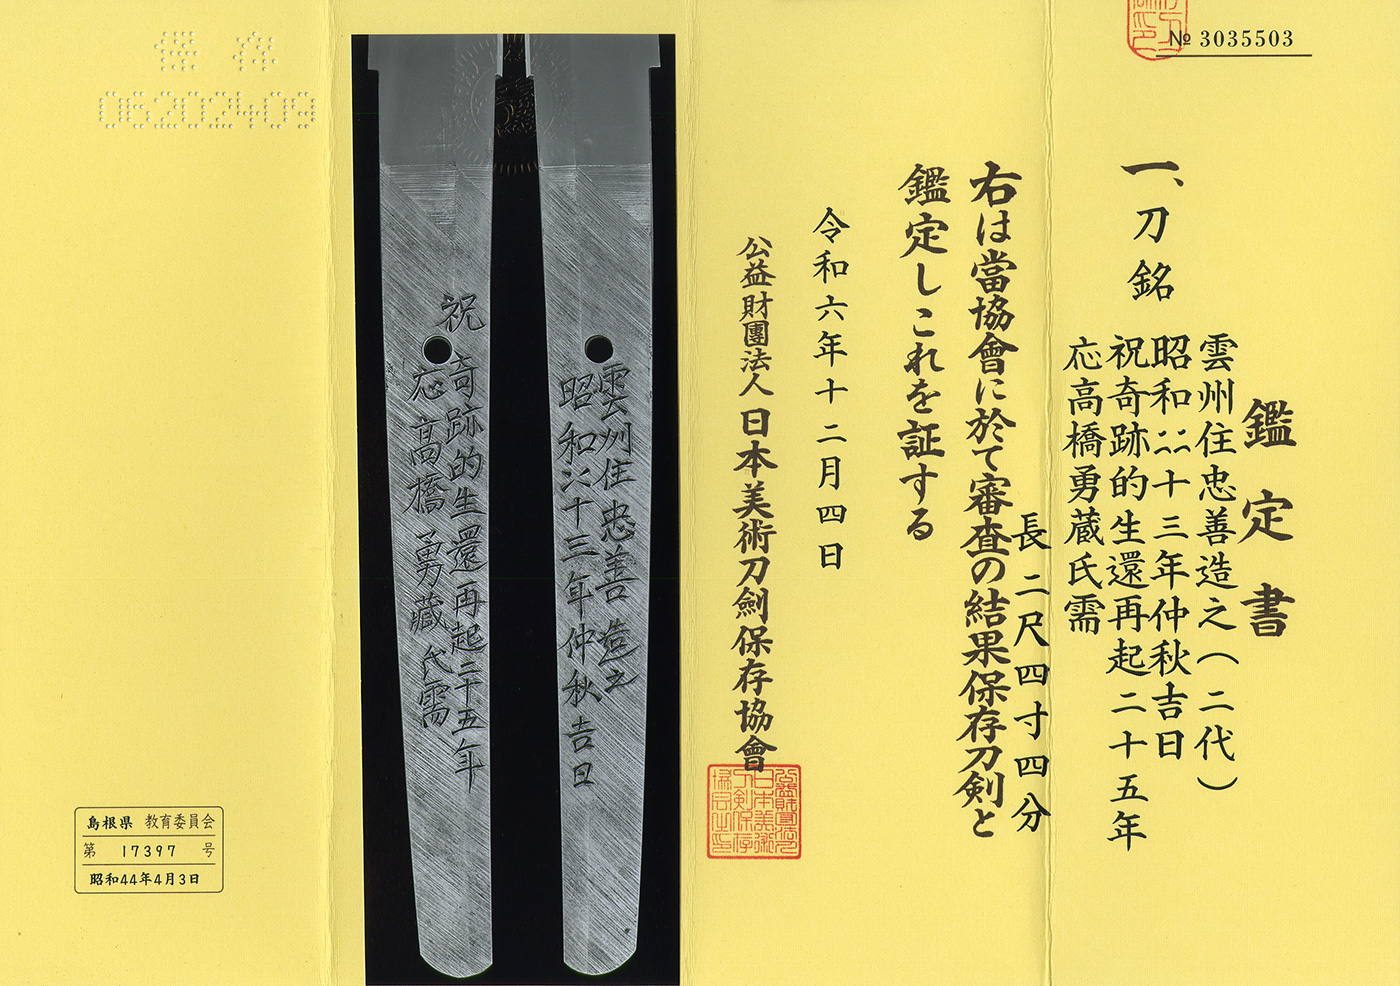 № 3035503
鑑定書
一、刀 銘
雲州住忠善造之(二代)
昭和∷十三年仲秋吉日
祝奇跡的生還再起二十五年
応高橋勇蔵氏需
長 二尺四寸四分
右は當協會に於て審査の結果保存刀剣と
鑑定しこれを証する
令和六年十二月四日
公益財團法人 日本美術刀劍保存協會
雲州住忠善造之
昭和∷十三年仲秋吉日
祝奇跡的生還再起二十五年
応高橋勇蔵氏需
保存
06202409
島根県 教育委員会
第 17397 号
昭和44年4月3日